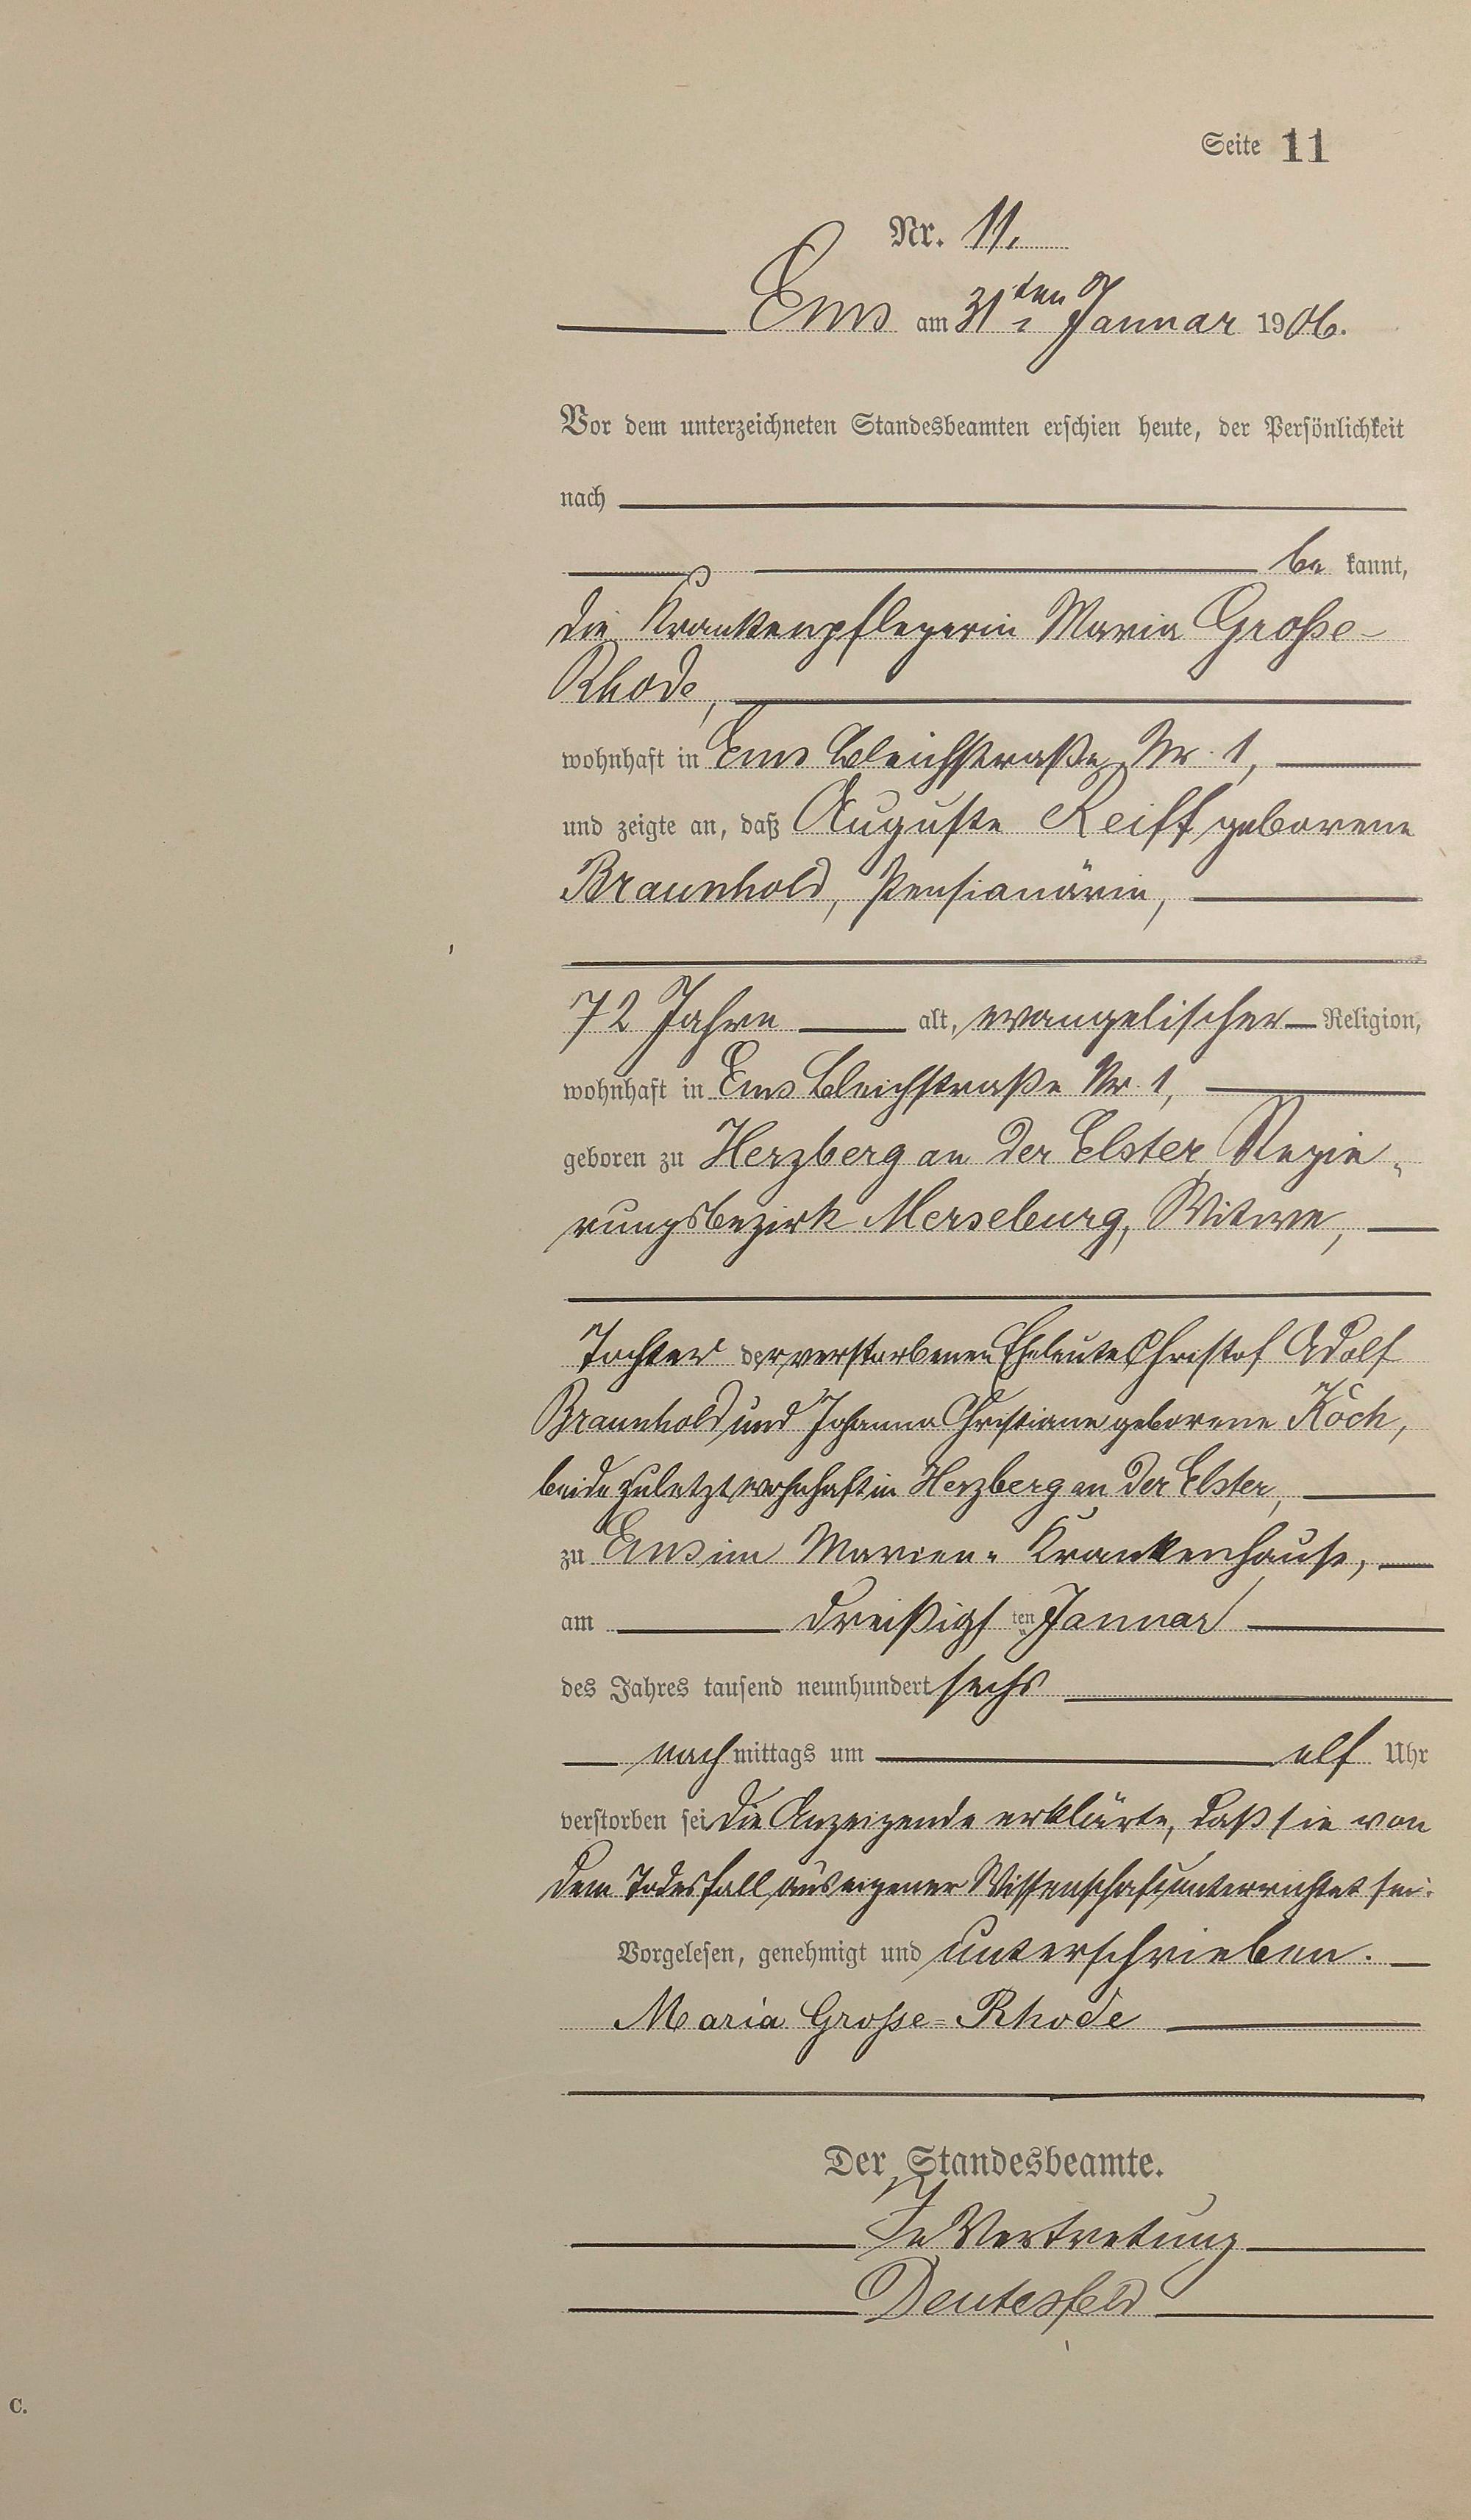 Seite 11
Nr. 11.
Ems am 31ten Januar 1906.
Vor dem unterzeichneten Standesbeamten erschien heute, der Persönlichkeit
nach
be kannt,
die Krankenpflegerin Maria Große-
Rhode,
wohnhaft in Ems Bleichstraße Nr. 1,
und zeigte an, daß Auguste Reiff geborene
Braunhold, Pensionärin,
72 Jahre alt, evangelischer Religion,
wohnhaft in Ems Bleichstraße Nr. 1,
geboren zu Herzberg an der Elster, Regie-
rungsbezirk Merseburg, Witwe,
Tochter der verstorbenen Eheleute Christof Adolf
Braunhold und Johanna Christiane geborene Koch,
beide zuletzt wohnhaft in Herzberg an der Elster,
zu Ems im Marien-Krankenhause,
am dreißigsten Januar
des Jahres tausend neunhundert sechs
nachmittags um elf Uhr
verstorben sei. Die Anzeigende erklärte, daß sie von
dem Todesfall aus eigener Wissenschaft unterrichtet sei.
Vorgelesen, genehmigt und unterschrieben.
Maria Große=Rhode
Der Standesbeamte.
In Vertretung
Deutesfeld
C.